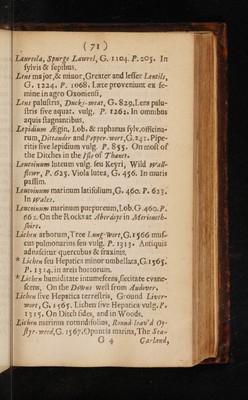 ( 71 )
Laureola, Spurge Laurel, G. 1104. P. 205. In
sylvis & sepibus.
Lens major, & minor, Greater and lesser Lentils,
G. 1224. P. 1068. Læte proveniunt ex se-
mine in agro Oxoniensi,
Lens palustris, Ducks-meat, G. 829. Lens palu-
stris sive aquat. vulg. P. 1262. In omnibus
aquis stagnantibus.
Lepidium Ægin, Lob. & raphanus sylv. officina-
rum, Dittander and Pepper-wort, G. 241. Pipe-
ritis sive lepidium vulg. P. 855. On most of
the Ditches in the Isle of Thanet.
Leucoinum luteum vulg. seu Keyri, Wild Wall-
flowr, P. 625. Viola lutea, G. 456. In muris
passim.
Leucoinum marinum latifolium, G. 460. P. 623.
In Wales.
Leucoinum marinum purpureum, Lob. G. 460. P.
662. On the Rocks at Aberdaye in Merioneth-
shire.
Lichen arborum, Tree Lung-Wort, G. 1566. mus-
cus pulmonarius seu vulg. P. 1313. Antiquis
adnascitur quercubus & fraxinis.
* Lichen seu Hepatica minor umbellata, G. 1565.
P. 1314. in areis hortorum.
* Lichen humiditate intumescens, siccitate evane-
scens, On the Downs west from Andover.
Lichen sive Hepatica terrestris, Ground Liver-
wort, G. 1565. Lichen sive Hepatica vulg. P.
1315. On Ditch sides, and in Woods.
Lichen marinus rotundifolius, Round-leav'd Oy-
ster-weed, G. 1567. Opuntia marina, The Sea-
G 4 Garland,